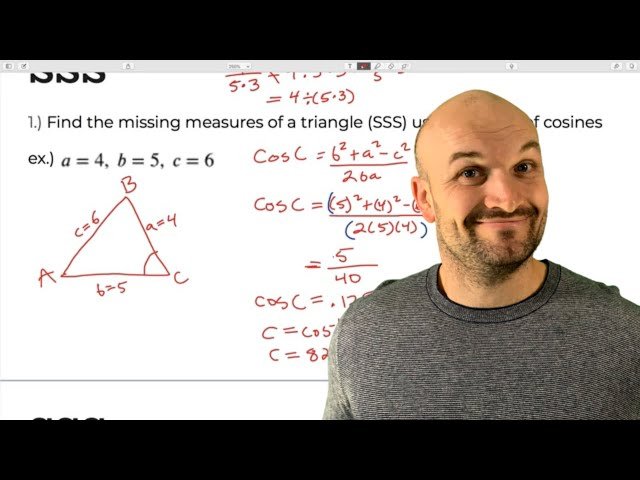 SSS
5·3
= 4÷(5·3)
1.) Find the missing measures of a triangle (SSS) of cosines
ex.) a = 4, b = 5, c = 6
Cos C = b² + a² - c²
2ba
Cos C = (5)² + (4)² -
(2(5)(4))
= 5
40
cos C =
C = cos
C = 82
B
c=6
a=4
A
C
b=5